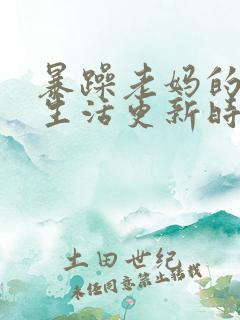 暴躁老妈的
生活更新时
土田世纪
未经同意禁止转载